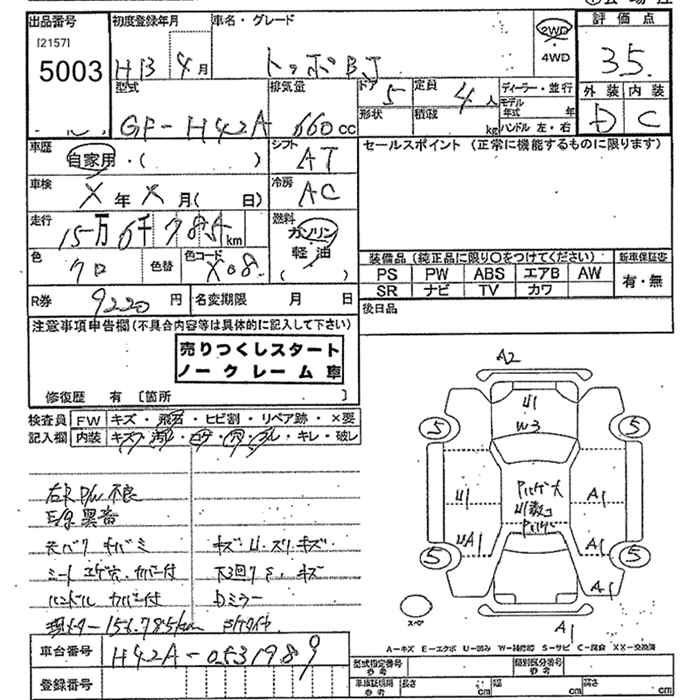 出品番号
[2157]
5003
初度登録年月
H13 年 4月
車名・グレード
トッポBJ
2WD
・
4WD
評価点
3.5
型式
GF-H42A
排気量
660cc
ドア
5
定員
4人
形状
積載
kg
ディーラー・並行
モデル
年式 年
ハンドル 左・右
外装 内装
D C
車歴
自家用・( )
シフト
AT
セールスポイント (正常に機能するものに限ります)
車検
X年X月( 日)
冷房
AC
走行
15万6千785km
燃料
ガソリン
軽油
( )
色
クロ
色替
色コード
X08
装備品(純正品に限り○をつけてください)
新車保証書
PS PW ABS エアB AW
SR ナビ TV カワ
有・無
R券 9220円
名変期限 月 日
後日品
注意事項申告欄(不具合内容等は具体的に記入して下さい)
売りつくしスタート
ノークレーム車
修復歴 有 [箇所 ]
検査員
記入欄
FW キズ・飛石・ヒビ割・リペア跡・×要
内装 キズ・汚レ・コゲ・穴・スレ・キレ・破レ
右R P/W 不良
シート コゲ穴.カバー付
ハンドル カバー付
キズ.U.スリキズ
下回りS.キズ
Dミラー
現メーター 156.785km
A2
U1
W3
5
5
U1
A1
UA1
A1
5
5
A1
A1
スペア
A－キズ E－エクボ U－凹み W－補修跡 S－サビ C－腐食 XX－交換済
車台番号 H42A-0531989
登録番号
型式指定番号
参考
類別区分番号
参考
車検証積用
参考
長さ cm
幅 cm
高さ cm